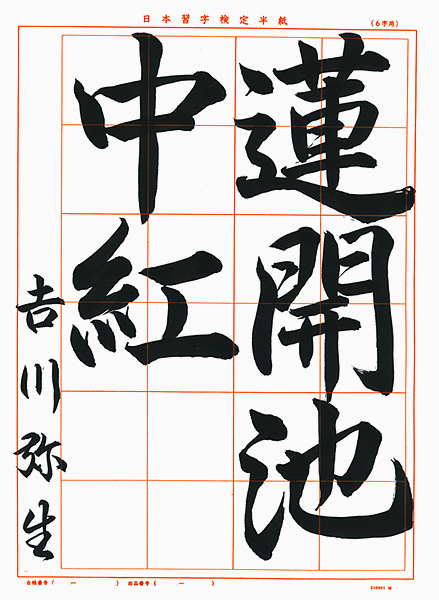 日本習字検定半紙
(6字用)
蓮開池
中紅
吉川弥生
台帳番号( ー ) 出品番号( ー )